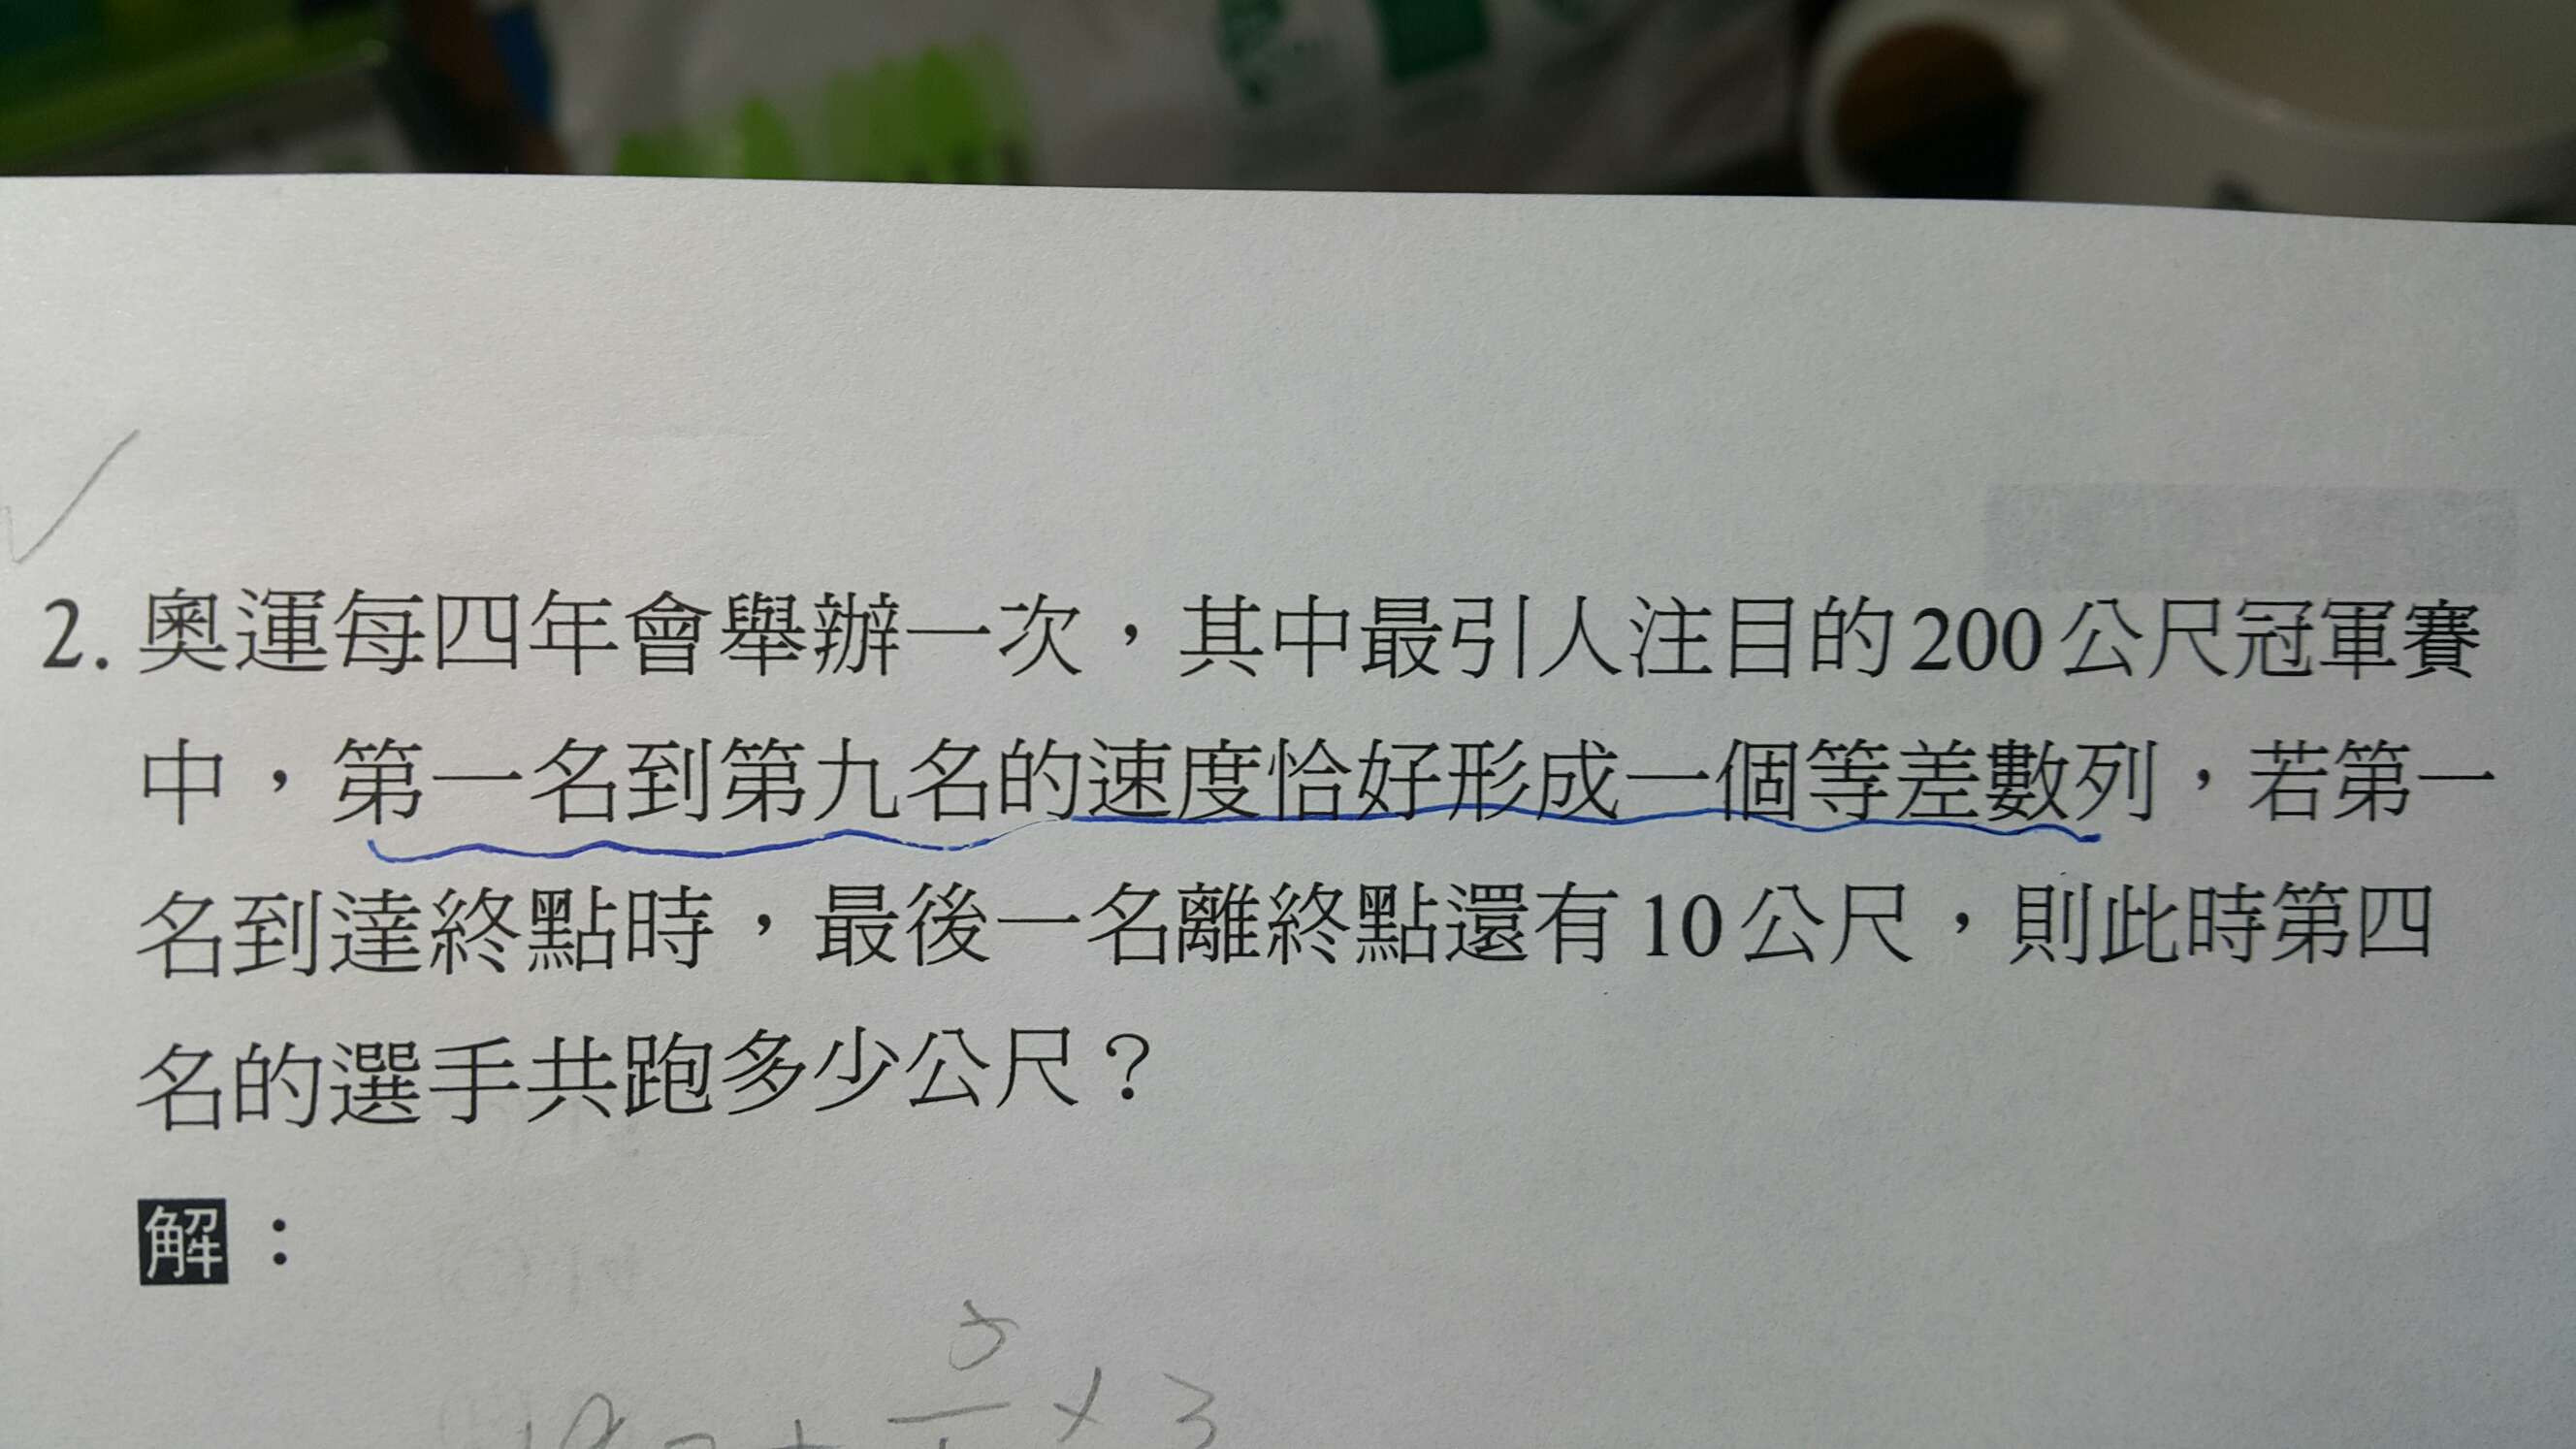 2. 奧運每四年會舉辦一次，其中最引人注目的200公尺冠軍賽
中，第一名到第九名的速度恰好形成一個等差數列，若第一
名到達終點時，最後一名離終點還有10公尺，則此時第四
名的選手共跑多少公尺？
解：